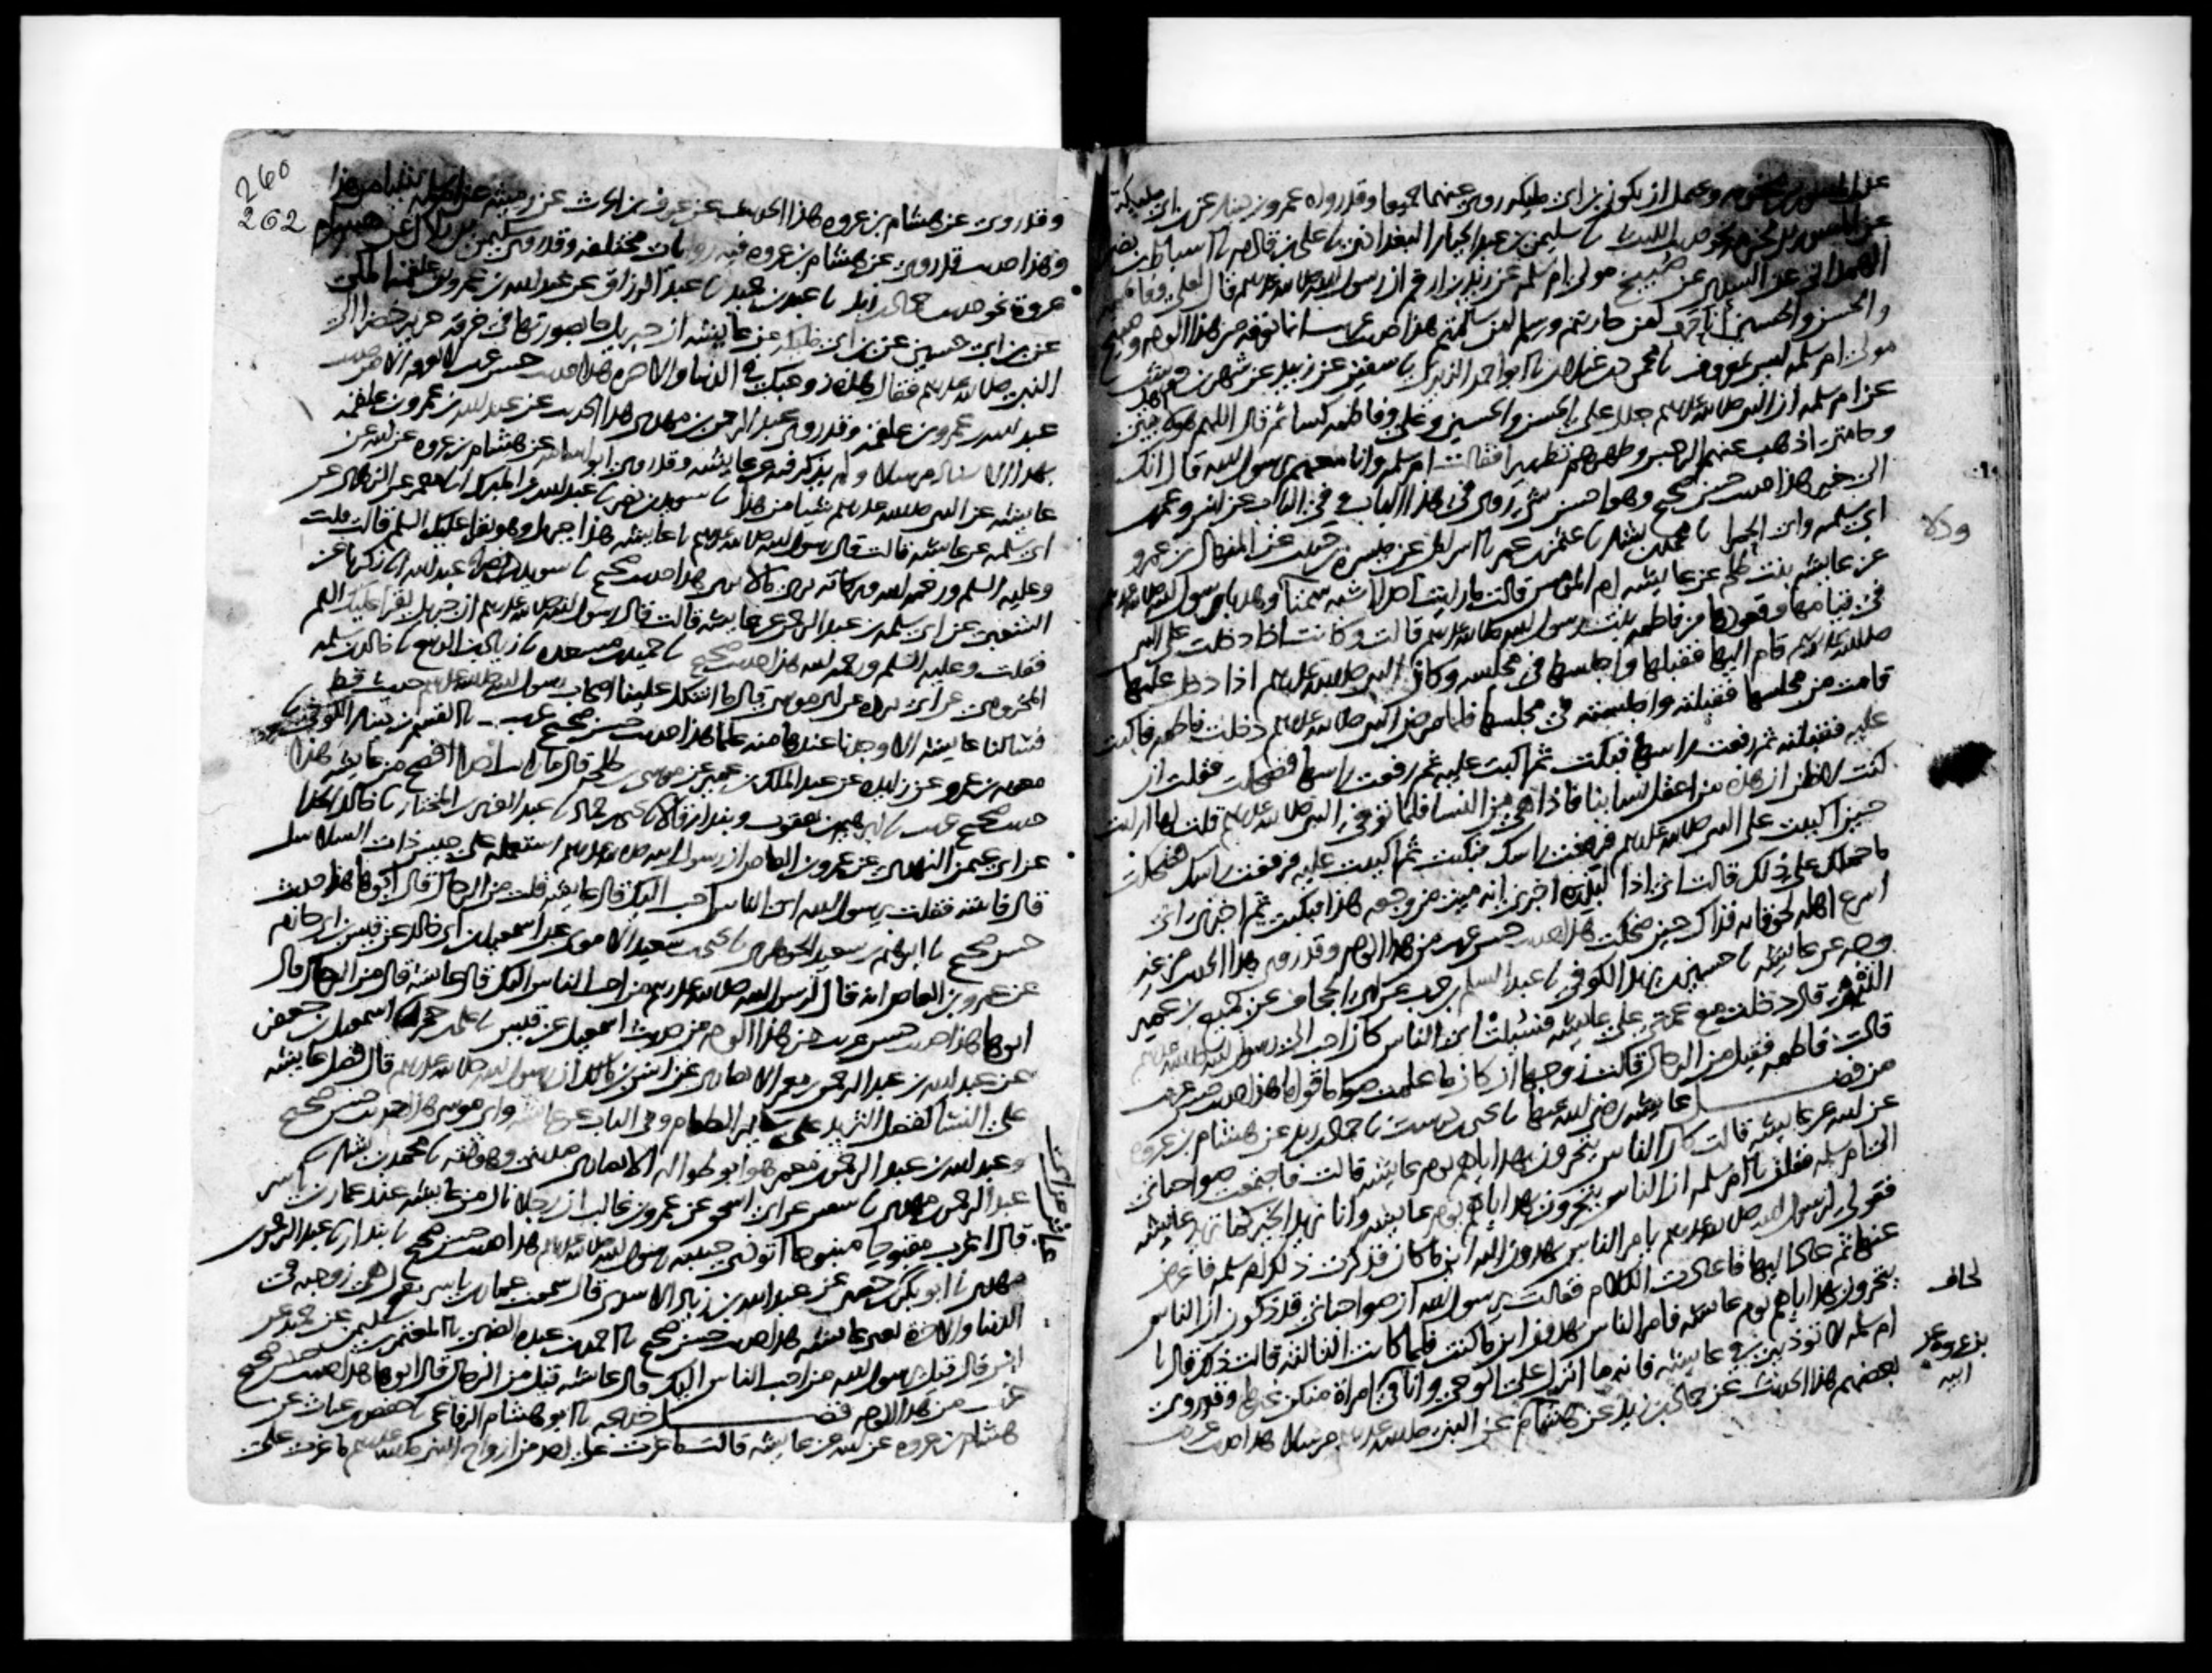 عن المسور بن مخرمة ويحتمل ان يكون ابن ابي مليكة روى عنهما جميعا وقد رواه عمرو بن دينار عن ابن ابي مليكة
عن المسور بن مخرمة نحو حديث الليث نا سليمن بن عبد الجبار البغدادي نا علي بن قادم نا اسباط بن نصر
الهمداني عن السدي عن صبيح مولى ام سلمة عن زيد بن ارقم ان رسول الله صلى الله عليه وسلم قال لعلي وفاطمة
والحسن والحسين انا حرب لمن حاربتم وسلم لمن سالمتم هذا حديث غريب انما نعرفه من هذا الوجه وصبيح
مولى ام سلمة ليس بمعروف نا محمود بن غيلان نا ابو احمد الزبيري نا سفين عن زبيد عن شهر بن حوشب
عن ام سلمة ان النبي صلى الله عليه وسلم جلل على الحسن والحسين وعلي وفاطمة كسا ثم قال اللهم هولا اهل بيتي
وحامتي اذهب عنهم الرجس وطهرهم تطهيرا فقالت ام سلمة وانا معهم يرسول الله قال انك
الى خير هذا حديث حسن صحيح وهو احسن شي روي في هذا الباب وفي الباب عن انس وعمر بن
ابي سلمة وابي الحمرا نا محمد بن بشار نا عثمن بن عمر نا اسرايل عن ميسرة بن حبيب عن المنهال بن عمرو
عن عايشة بنت طلحة عن عايشة ام المومنين قالت ما رايت احدا اشبه سمتا وهديا برسول الله صلى الله عليه وسلم
في قيامها وقعودها من فاطمة بنت رسول الله صلى الله عليه وسلم قالت وكانت اذا دخلت على النبي
صلى الله عليه وسلم قام اليها فقبلها واجلسها في مجلسه وكان النبي صلى الله عليه وسلم اذا دخل عليها
قامت من مجلسها فقبلته واجلسته في مجلسها فلما مرض النبي صلى الله عليه وسلم دخلت فاطمة فاكبت
عليه فقبلته ثم رفعت راسها فبكت ثم اكبت عليه ثم رفعت راسها فضحكت فقلت ان
كنت لاظن ان هذه من اعقل نساينا فاذا هي من النسا فلما توفي النبي صلى الله عليه وسلم قلت لها ارايت
حين اكببت على النبي صلى الله عليه وسلم فرفعت راسك فبكيت ثم اكببت عليه فرفعت راسك فضحكت
ما حملك على ذلك قالت اني اذا لبذرة اخبرني انه ميت من وجعه هذا فبكيت ثم اخبرني اني
اسرع اهله لحوقا به فذاك حين ضحكت هذا حديث حسن غريب من هذا الوجه وقد روي هذا الحديث من غير
وجه عن عايشة نا حسين بن يزيد الكوفي نا عبد السلم بن حرب عن ابي الجحاف عن جميع بن عمير
التيمي قال دخلت مع عمتي على عايشة فسئلت اي الناس كان احب الى رسول الله صلى الله عليه وسلم
قالت فاطمة فقيل من الرجال قالت زوجها ان كان ما علمت صواما قواما هذا حديث حسن غريب
من فضل عايشة رضي الله عنها نا يحيى بن درست نا حماد بن زيد عن هشام بن عروة
عن ابيه عن عايشة قالت كان الناس يتحرون بهداياهم يوم عايشة قالت فاجتمعن صواحباتي
الى ام سلمة فقلن يا ام سلمة ان الناس يتحرون بهداياهم يوم عايشة وانا نريد الخير كما تريد عايشة
فقولي لرسول الله صلى الله عليه وسلم يامر الناس يهدون اليه اين ما كان فذكرت ذلك ام سلمة فاعرض
عنها ثم عاد اليها فاعادت الكلام فقالت يرسول الله ان صواحباتي قد ذكرن ان الناس
يتحرون بهداياهم يوم عايشة فامر الناس يهدون اين ما كنت فلما كانت الثالثة قالت ذلك قال يا
ام سلمة لا توذيني في عايشة فانه ما انزل علي الوحي وانا في امراة منكن غيرها وقد روى
بعضهم هذا الحديث عن حماد بن زيد عن هشام عن النبي صلى الله عليه وسلم مرسلا هذا حديث غريب
لحاف
بن عروة عن
ابيه
260
262
وقد روي عن هشام بن عروة هذا الحديث عن عوف بن الحرث عن رميثة عن ام سلمة شيا من هذا
وهذا حديث قد روي عن هشام بن عروة فيه روايات مختلفة وقد روى سليمن بن بلال عن هشام بن
عروة نحو حديث حماد بن زيد نا عبد بن حميد نا عبد الرزاق عن عبد الله بن عمرو بن علقمة المكي
عن ابن ابي حسين عن ابن ابي مليكة عن عايشة ان جبريل جا بصورتها في خرقة حرير خضرا الى
النبي صلى الله عليه وسلم فقال هذه زوجتك في الدنيا والاخرة هذا حديث حسن غريب لا نعرفه الا من حديث
عبد الله بن عمرو بن علقمة وقد روى عبد الرحمن بن مهدي هذا الحديث عن عبد الله بن عمرو بن علقمة
بهذا الاسناد مرسلا ولم يذكر فيه عن عايشة وقد روى ابو اسامة عن هشام بن عروة عن ابيه عن
عايشة عن النبي صلى الله عليه وسلم شيا من هذا نا سويد بن نصر نا عبد الله بن المبارك انا معمر عن الزهري عن
ابي سلمة عن عايشة قالت قال رسول الله صلى الله عليه وسلم يا عايشة هذا جبريل وهو يقرا عليك السلم قالت قلت
وعليه السلم ورحمة الله وبركاته ترى ما لا نرى هذا حديث صحيح نا سويد بن نصر انا عبد الله انا زكريا عن
الشعبي عن ابي سلمة بن عبد الرحمن عن عايشة قالت قال رسول الله صلى الله عليه وسلم ان جبريل يقرا عليك السلم
فقلت وعليه السلم ورحمة الله هذا حديث صحيح نا حميد بن مسعدة نا زياد بن الربيع نا خالد بن سلمة
المخزومي عن ابي بردة عن ابي موسى قال ما اشكل علينا اصحاب رسول الله صلى الله عليه وسلم حديث قط
فسالنا عايشة الا وجدنا عندها منه علما هذا حديث حسن صحيح غريب نا القسم بن دينار الكوفي نا
معوية بن عمرو عن زايدة عن عبد الملك بن عمير عن موسى بن طلحة قال ما رايت احدا افصح من عايشة هذا
حديث صحيح غريب نا ابرهيم بن يعقوب وبندار قالا نا يحيى بن حماد نا عبد العزيز بن المختار نا خالد الحذا
عن ابي عثمن النهدي عن عمرو بن العاص ان رسول الله صلى الله عليه وسلم استعمله على جيش ذات السلاسل
قال فاتيته فقلت يرسول الله اي الناس احب اليك قال عايشة قلت من الرجال قال ابوها هذا حديث
حسن صحيح نا ابرهيم بن سعيد الجوهري نا يحيى بن سعيد الاموي عن اسمعيل بن ابي خالد عن قيس بن ابي حازم
عن عمرو بن العاص انه قال لرسول الله صلى الله عليه وسلم من احب الناس اليك قال عايشة قال من الرجال قال
ابوها هذا حديث حسن غريب من هذا الوجه من حديث اسمعيل عن قيس نا علي بن حجر نا اسمعيل بن جعفر
عن عبد الله بن عبد الرحمن بن معمر الانصاري عن انس بن مالك ان رسول الله صلى الله عليه وسلم قال فضل عايشة
على النسا كفضل الثريد على ساير الطعام وفي الباب عن عايشة وابي موسى هذا حديث حسن صحيح
وعبد الله بن عبد الرحمن بن معمر هو ابو طوالة الانصاري مديني وهو ثقة نا محمد بن بشار نا
عبد الرحمن بن مهدي نا سفين عن ابي اسحق عن عمرو بن غالب ان رجلا نال من عايشة عند عمار بن ياسر
قال اغرب مقبوحا منبوحا اتوذي حبيبة رسول الله صلى الله عليه وسلم هذا حديث حسن صحيح نا بندار نا عبد الرحمن بن
مهدي نا ابو بكر بن عياش عن ابي حصين عن عبد الله بن زياد الاسدي قال سمعت عمار بن ياسر يقول هي زوجته في
الدنيا والاخرة يعني عايشة هذا حديث حسن صحيح نا احمد بن عبدة الضبي نا المعتمر بن سليمن عن حميد عن
انس قال قيل يرسول الله من احب الناس اليك قال عايشة قيل من الرجال قال ابوها هذا حديث حسن صحيح
غريب من هذا الوجه فضل خديجة نا ابو هشام الرفاعي نا حفص بن غياث عن
هشام بن عروة عن ابيه عن عايشة قالت ما غرت على احد من ازواج النبي صلى الله عليه وسلم ما غرت على